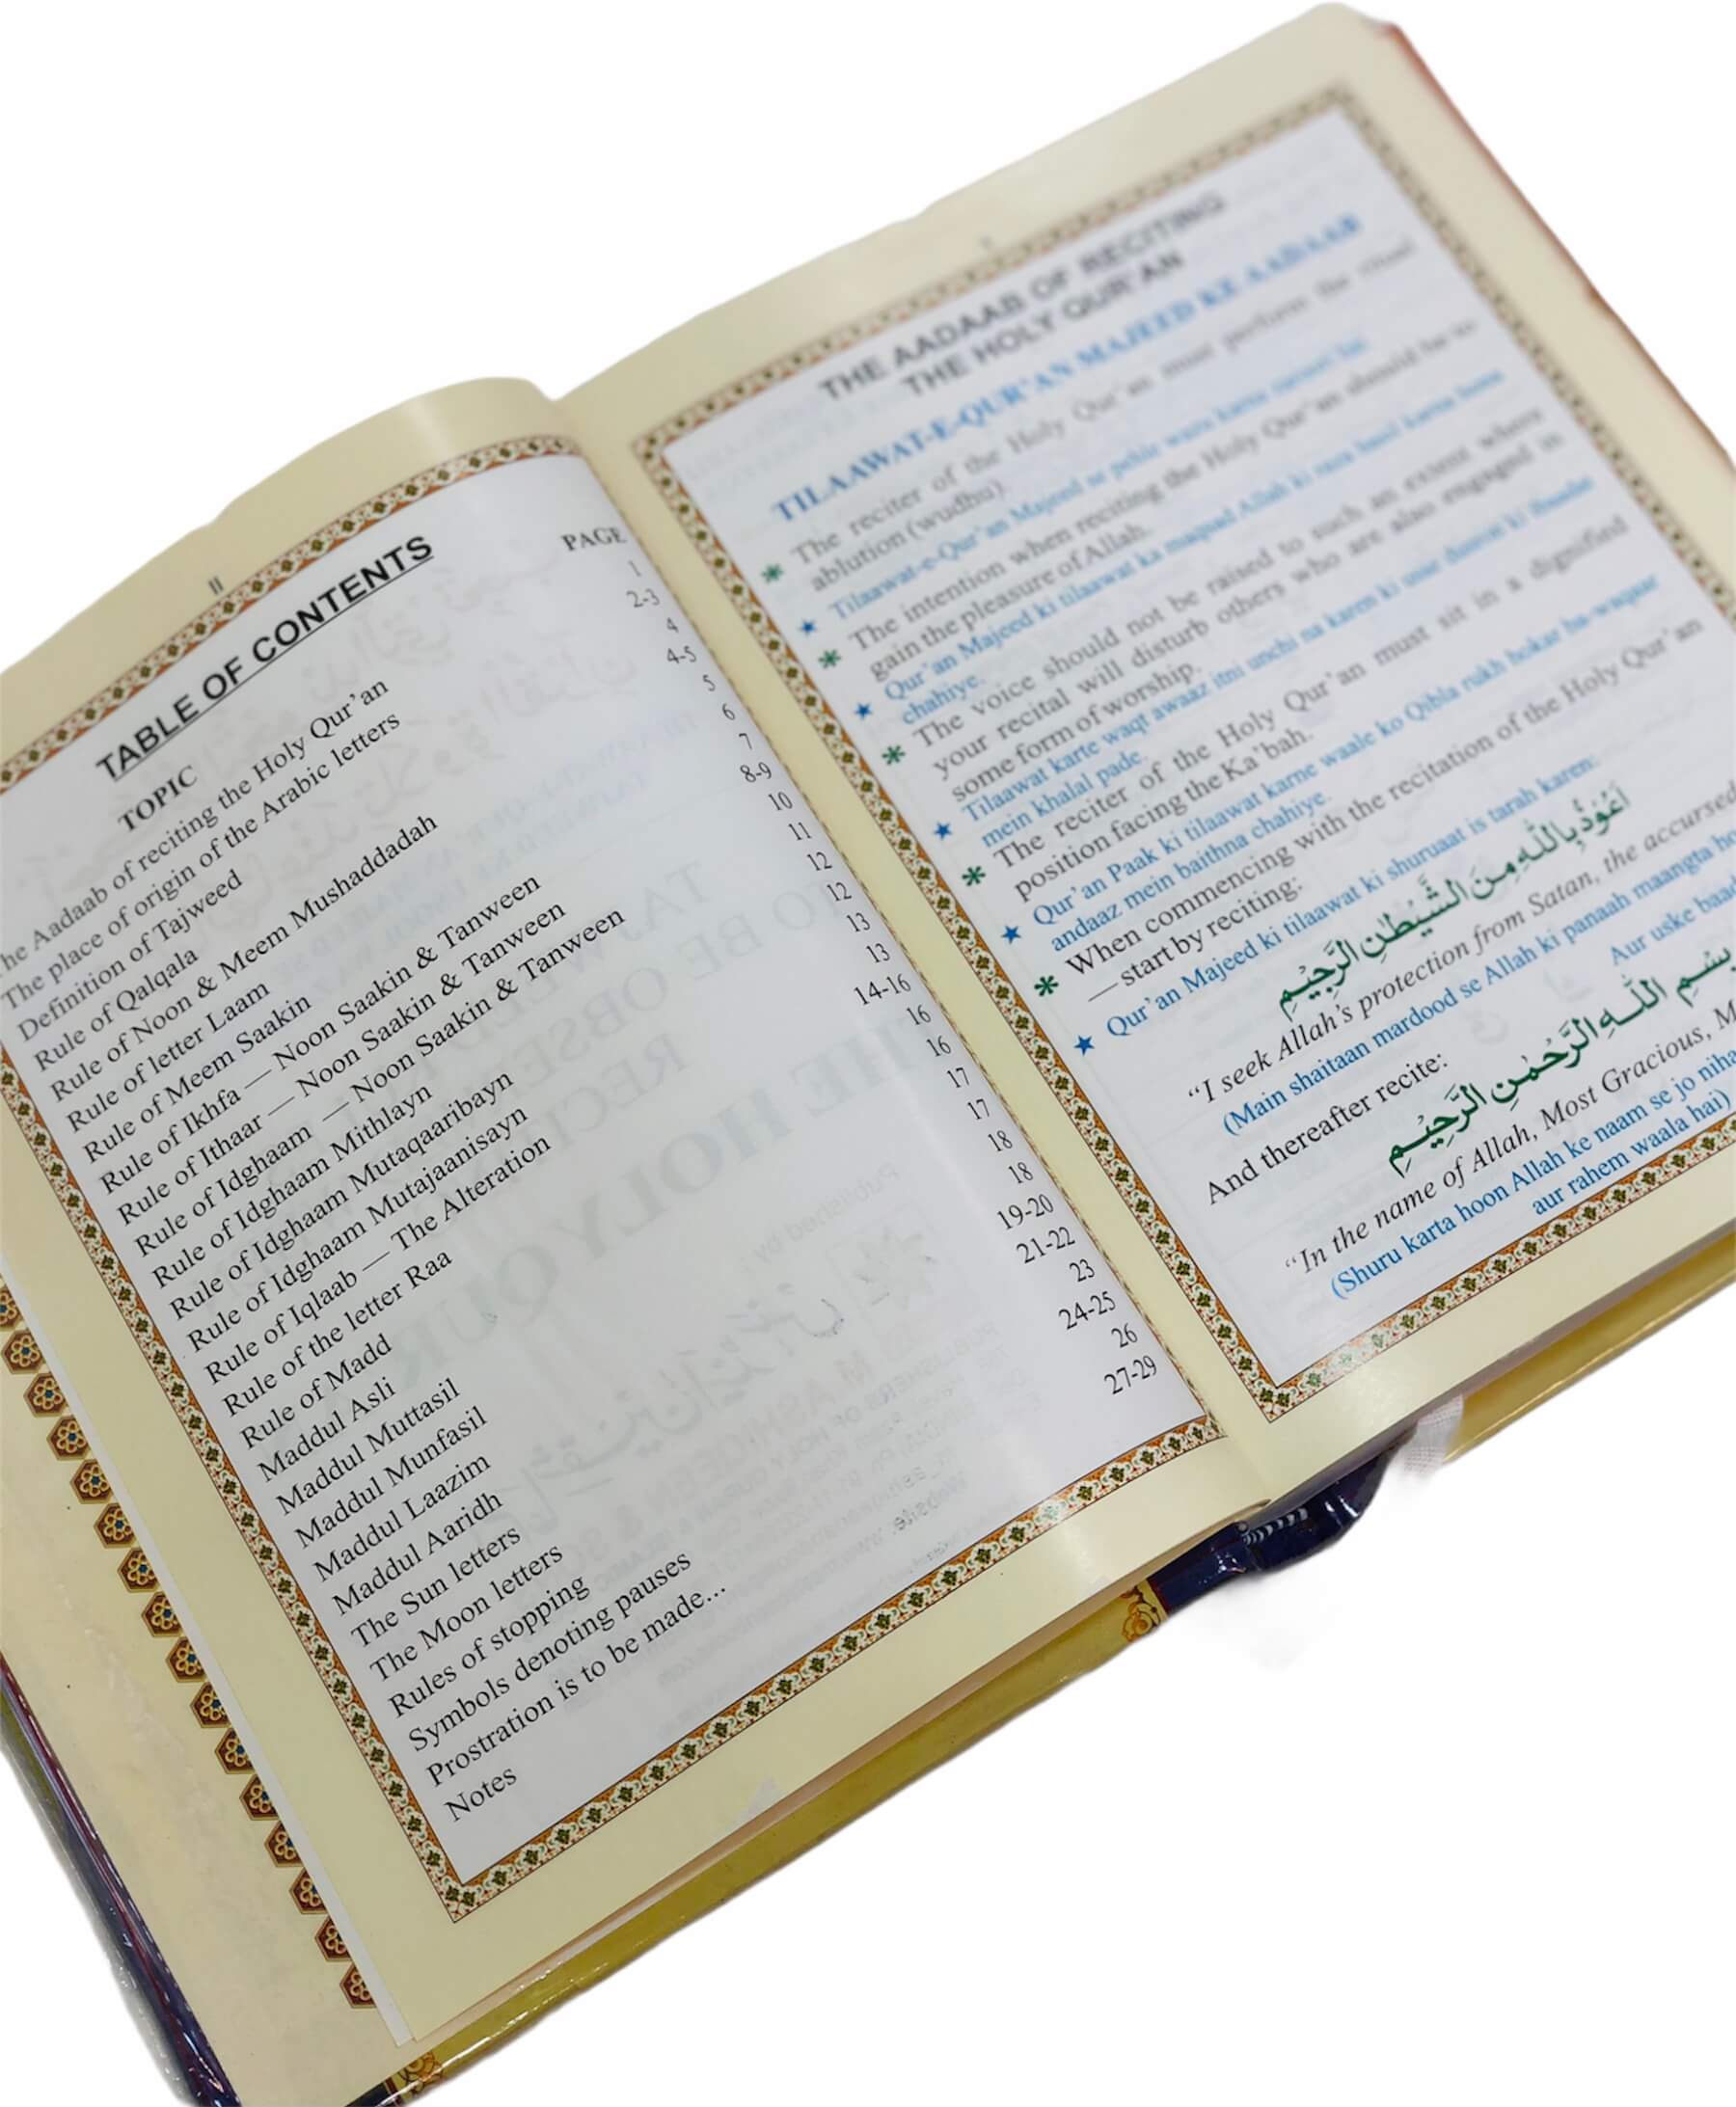 II
TABLE OF CONTENTS
TOPIC PAGE
he Aadaab of reciting the Holy Qur'an 1
The place of origin of the Arabic letters 2-3
Definition of Tajweed 4
Rule of Qalqala 4-5
Rule of Noon & Meem Mushaddadah 5
Rule of letter Laam 6
Rule of Meem Saakin 7
Rule of Ikhfa — Noon Saakin & Tanween 8-9
Rule of Ithaar — Noon Saakin & Tanween 10
Rule of Idghaam — Noon Saakin & Tanween 11
Rule of Idghaam Mithlayn 12
Rule of Idghaam Mutaqaaribayn 12
Rule of Idghaam Mutajaanisayn 13
Rule of Iqlaab — The Alteration 13
Rule of the letter Raa 14-16
Rule of Madd 16
Maddul Asli 16
Maddul Muttasil 17
Maddul Munfasil 17
Maddul Laazim 18
Maddul Aaridh 18
The Sun letters 19-20
The Moon letters 21-22
Rules of stopping 23
Symbols denoting pauses 24-25
Prostration is to be made... 26
Notes 27-29
THE AADAAB OF RECITING
THE HOLY QUR'AN
TILAAWAT-E-QUR'AN MAJEED KE AADAAB
* The reciter of the Holy Qur'an must perform the ritual
ablution (wudhu).
★ Tilaawat-e-Qur'an Majeed se pehle wazu karna zaroori hai
* The intention when reciting the Holy Qur'an should be to
gain the pleasure of Allah.
★ Qur'an Majeed ki tilaawat ka maqsad Allah ki raza hasil karna hona
chahiye.
* The voice should not be raised to such an extent where
your recital will disturb others who are also engaged in
some form of worship.
★ Tilaawat karte waqt awaaz itni unchi na karen ki usse dusron ki ibaadat
mein khalal pade.
* The reciter of the Holy Qur'an must sit in a dignified
position facing the Ka'bah.
★ Qur'an Paak ki tilaawat karne waale ko Qibla rukh hokar ba-waqaar
andaaz mein baithna chahiye.
* When commencing with the recitation of the Holy Qur'an
— start by reciting:
★ Qur'an Majeed ki tilaawat ki shuruaat is tarah karen:
اَعُوْذُ بِاللّٰهِ مِنَ الشَّيْطٰنِ الرَّجِيْمِ
“I seek Allah's protection from Satan, the accursed
(Main shaitaan mardood se Allah ki panaah maangta
And thereafter recite: Aur uske baad
بِسْمِ اللّٰهِ الرَّحْمٰنِ الرَّحِيْمِ
“In the name of Allah, Most Gracious, M
(Shuru karta hoon Allah ke naam se jo niha
aur rahem waala hai)